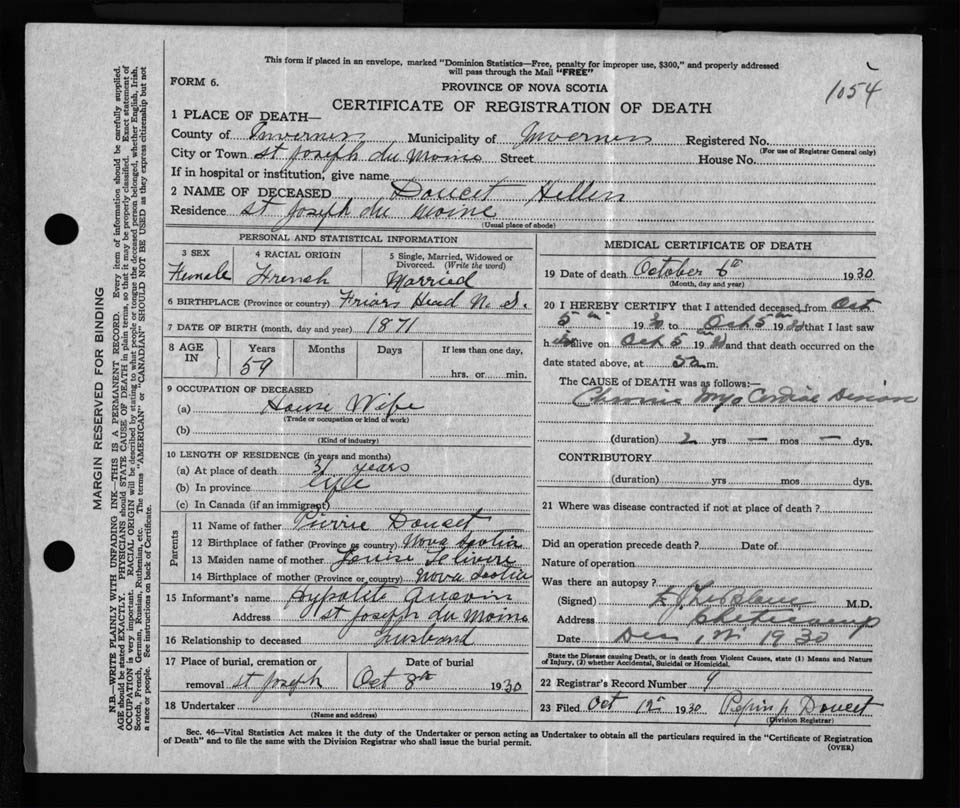 This form if placed in an envelope, marked "Dominion Statistics—Free, penalty for improper use, $300," and properly addressed
will pass through the Mail "FREE"
FORM 6.
PROVINCE OF NOVA SCOTIA
1054
CERTIFICATE OF REGISTRATION OF DEATH
1 PLACE OF DEATH—
County of Inverness Municipality of Inverness Registered No.
(For use of Registrar General only)
City or Town St Joseph du Moine Street House No.
If in hospital or institution, give name
2 NAME OF DECEASED Doucet Hellen
Residence St Joseph du Moine
(Usual place of abode)
PERSONAL AND STATISTICAL INFORMATION
3 SEX
Female
4 RACIAL ORIGIN
French
5 Single, Married, Widowed or
Divorced. (Write the word)
Married
6 BIRTHPLACE (Province or country) Friars Head N. S.
7 DATE OF BIRTH (month, day and year) 1871
8 AGE
IN
Years
59
Months
Days
If less than one day,
hrs. or min.
9 OCCUPATION OF DECEASED
(a) House Wife
(Trade or occupation or kind of work)
(b)
(Kind of industry)
10 LENGTH OF RESIDENCE (in years and months)
(a) At place of death 31 years
(b) In province
(c) In Canada (if an immigrant)
Parents
11 Name of father Doucet
12 Birthplace of father (Province or country) Nova Scotia
13 Maiden name of mother
14 Birthplace of mother (Province or country) Nova Scotia
15 Informant's name Hypolite Aucoin
Address St Joseph du Moine
16 Relationship to deceased husband
17 Place of burial, cremation or
removal St Joseph
Date of burial
Oct 8th 1930
18 Undertaker
(Name and address)
MEDICAL CERTIFICATE OF DEATH
19 Date of death October 6th 1930
(Month, day and year)
20 I HEREBY CERTIFY that I attended deceased from Oct
5th 1930 to Oct 5th 1930 that I last saw
h alive on Oct 5th 1930 and that death occurred on the
date stated above, at 5 a m.
The CAUSE of DEATH was as follows:—
Chronic Myo Cardial
(duration) 2 yrs — mos — dys.
CONTRIBUTORY
(duration) yrs. mos. dys.
21 Where was disease contracted if not at place of death?
Did an operation precede death? Date of
Nature of operation
Was there an autopsy?
(Signed) M.D.
Address Cheticamp
Date Dec 1st 1930
State the Disease causing Death, or in death from Violent Causes, state (1) Means and Nature
of Injury, (2) whether Accidental, Suicidal or Homicidal.
22 Registrar's Record Number 9
23 Filed Oct 12 1930 Doucet
(Division Registrar)
Sec. 46—Vital Statistics Act makes it the duty of the Undertaker or person acting as Undertaker to obtain all the particulars required in the "Certificate of Registration
of Death" and to file the same with the Division Registrar who shall issue the burial permit.
(OVER)
MARGIN RESERVED FOR BINDING
N.B.—WRITE PLAINLY WITH UNFADING INK.—THIS IS A PERMANENT RECORD. Every item of information should be carefully supplied.
AGE should be stated EXACTLY. PHYSICIANS should STATE CAUSE OF DEATH in plain terms, so that it may be properly classified. Exact statement of
OCCUPATION is very important. RACIAL ORIGIN will be described by stating to what people or tongue the deceased person belonged, whether English, Irish,
Scotch, French, German, Russian, Ruthenian, etc. The terms "AMERICAN" or "CANADIAN" SHOULD NOT BE USED as they express citizenship but not
a race or people. See instructions on back of Certificate.